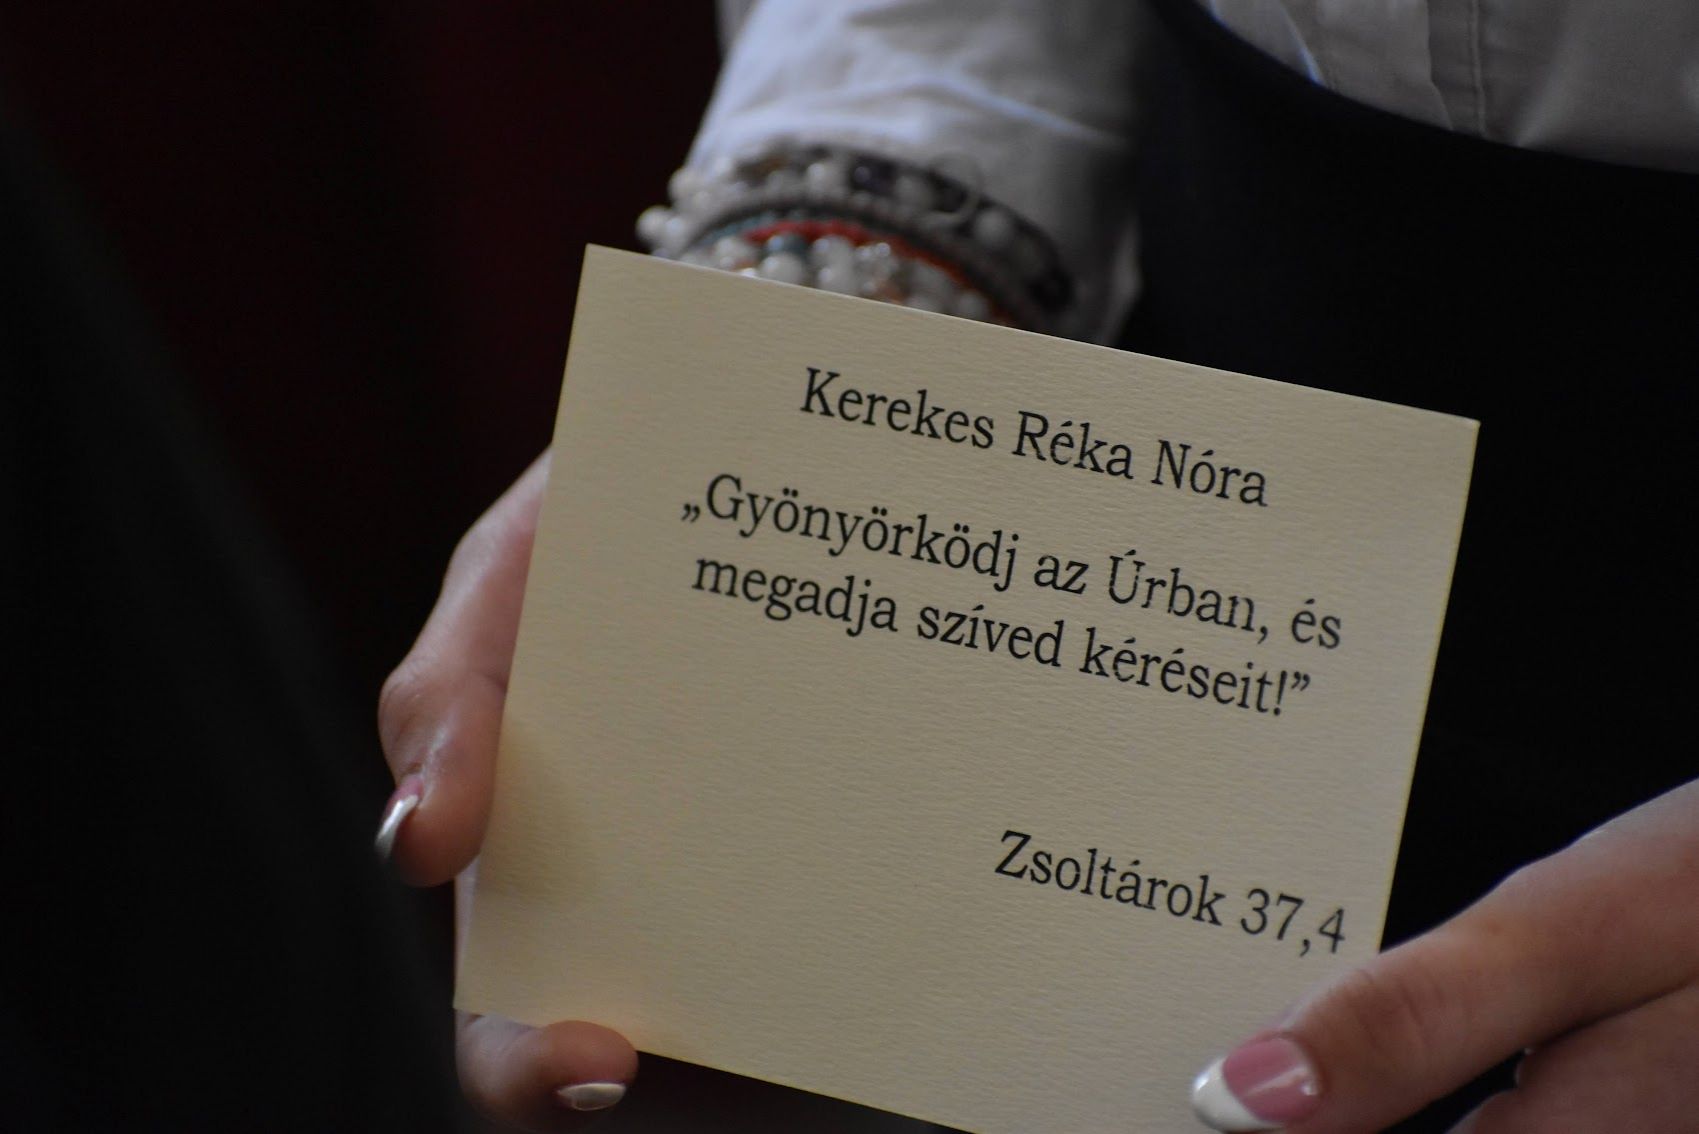 Kerekes Réka Nóra
„Gyönyörködj az Úrban, és
megadja szíved kéréseit!”
Zsoltárok 37,4